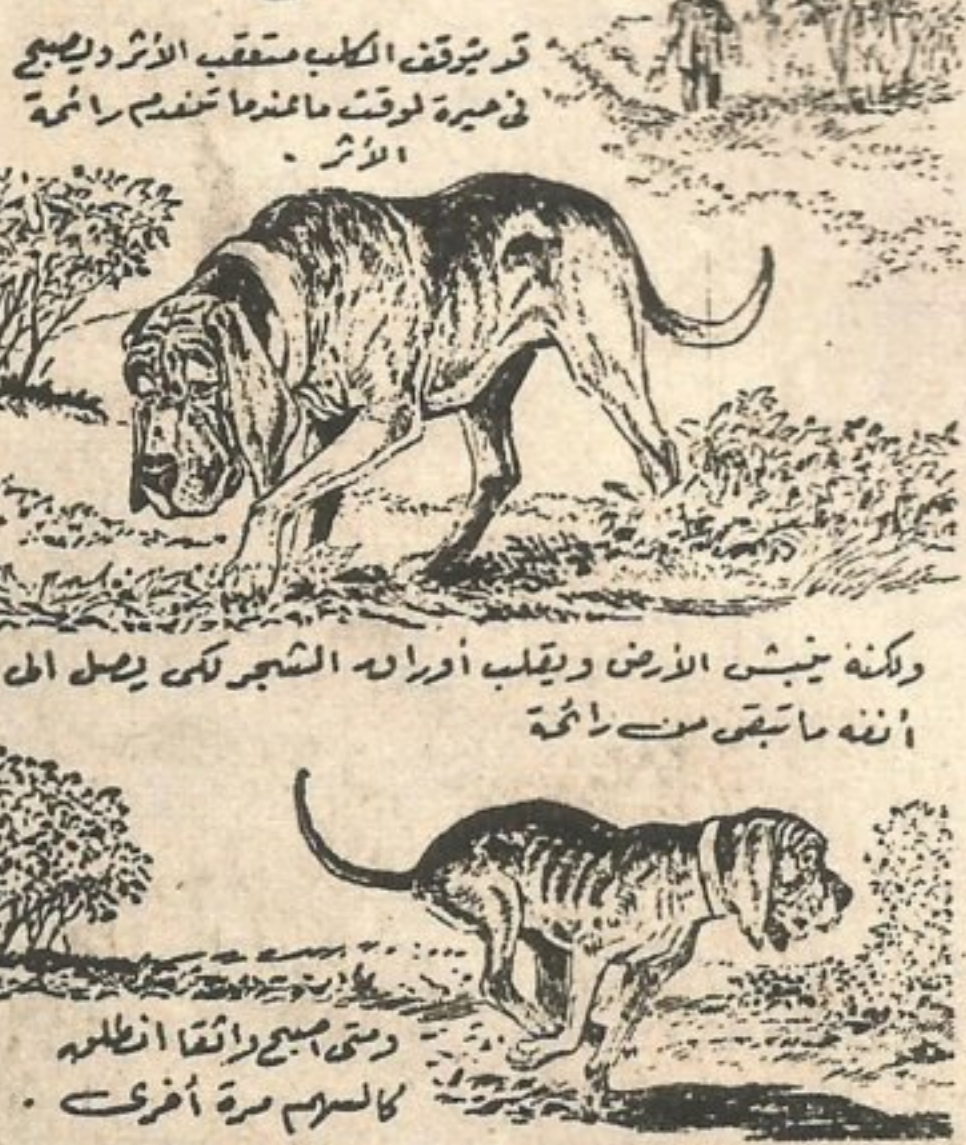 قد يتوقف الكلب متعقب الأثر ويصبح
فى حيرة لوقت ما عندما تنعدم رائحة
الأثر .
ولكنه ينبش الأرض ويقلب أوراق الشجر لكى يصل الى
أنفه ما تبقى من رائحة
ومتى اصبح واثقا انطلق
كالسهم مرة أخرى .